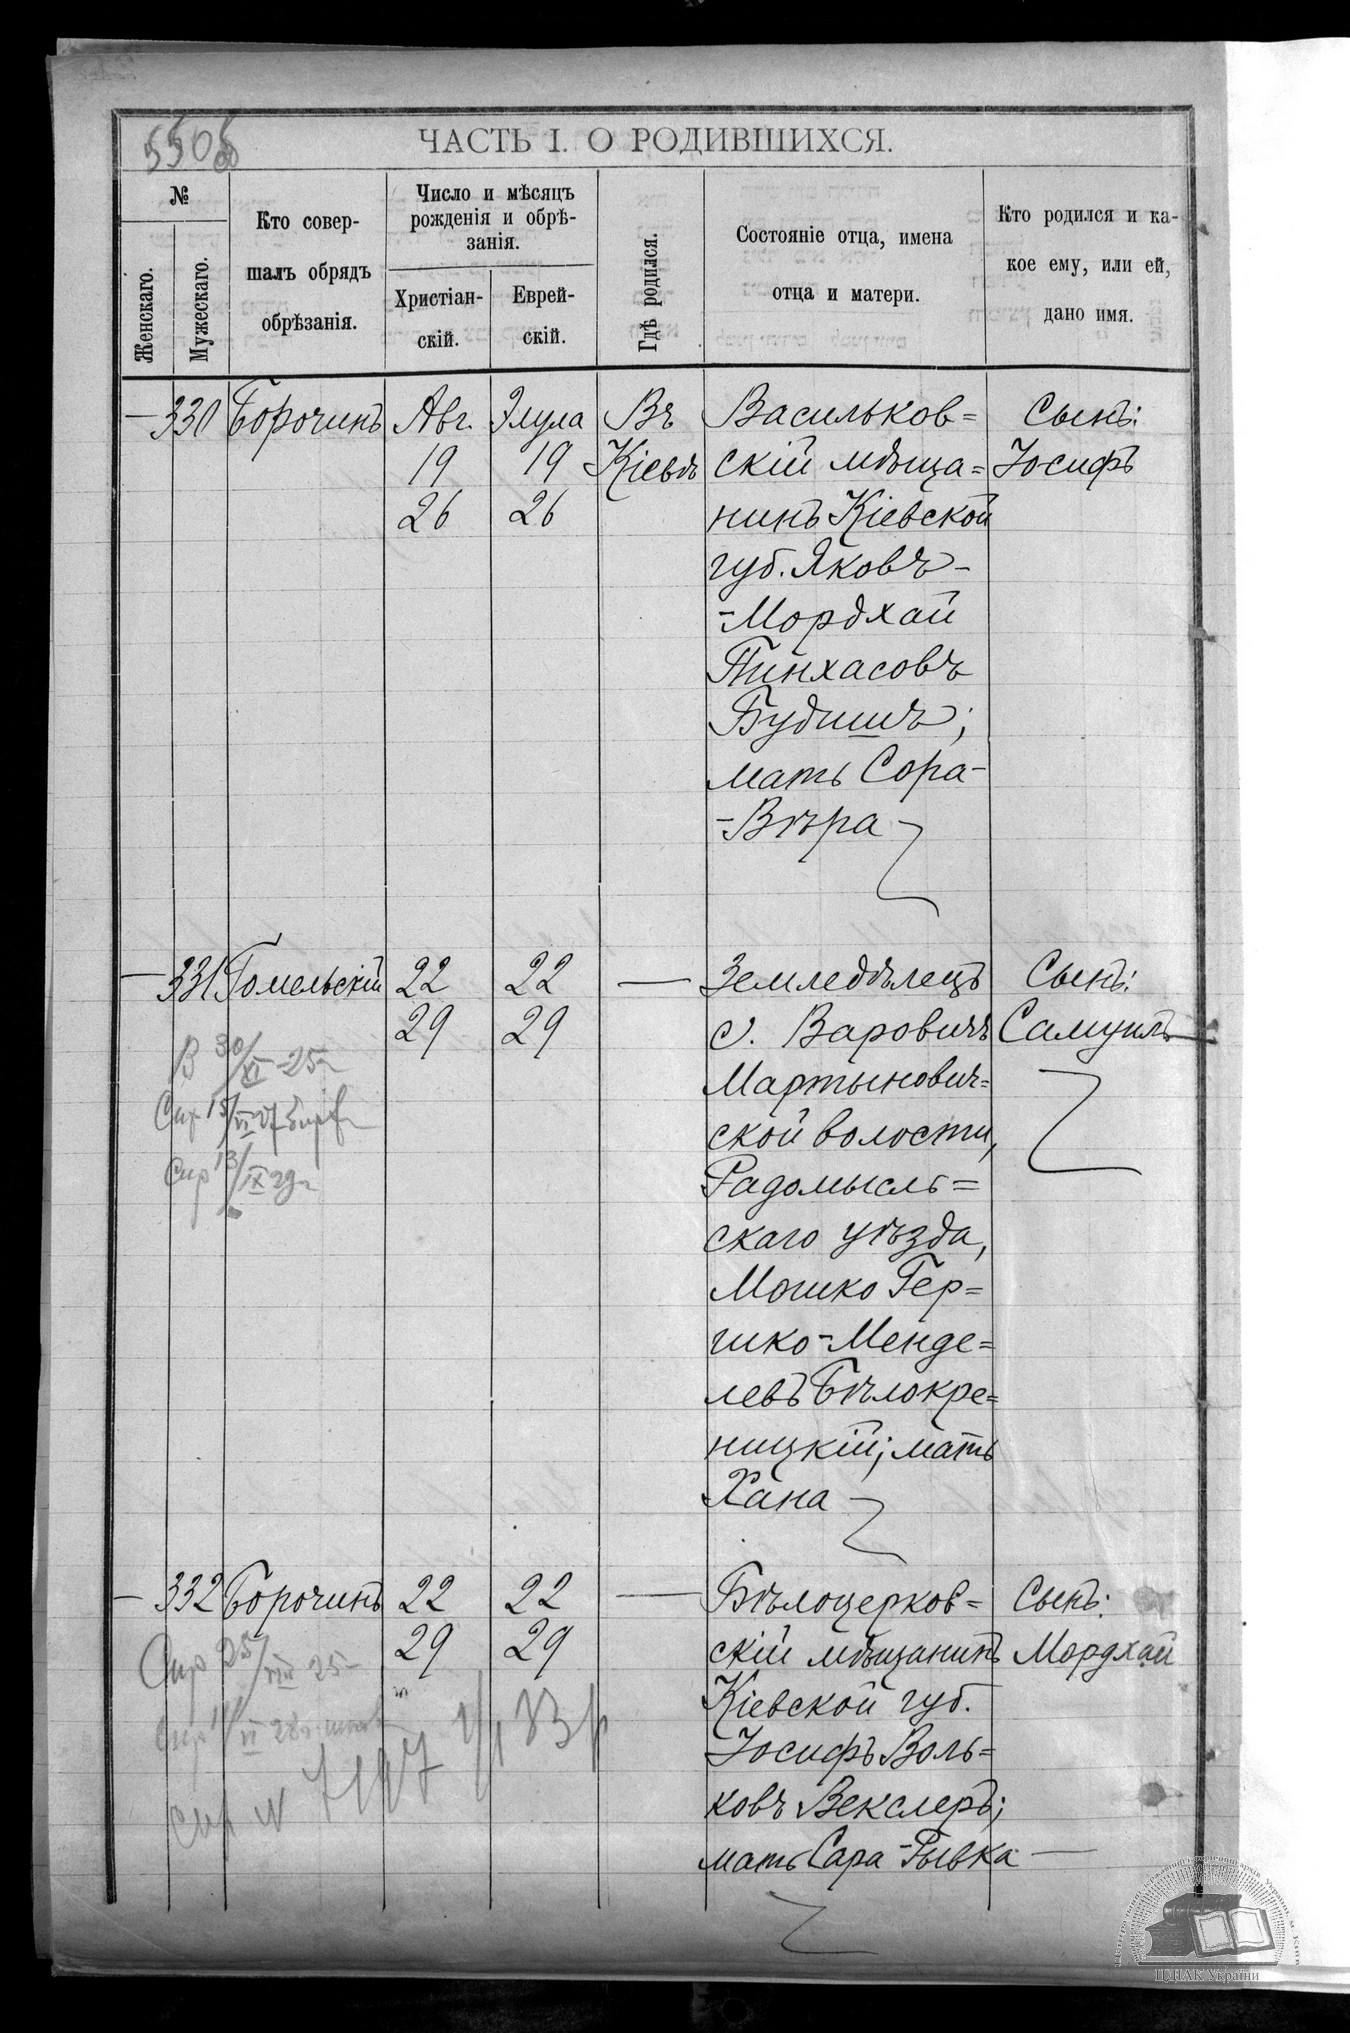 ЧАСТЬ I. О РОДИВШИХСЯ.
№
Женскаго.
Мужескаго.
Кто совер-
шалъ обрядъ
обрѣзанія.
Число и мѣсяцъ
рожденія и обрѣ-
занія.
Христіан-
скій.
Еврей-
скій.
Гдѣ родился.
Состояніе отца, имена
отца и матери.
Кто родился и ка-
кое ему, или ей,
дано имя.
— 330 Борочинъ
Авг.
19
26
Элула
19
26
Въ
Кіевѣ
Васильков=
скій мѣща=
нинъ Кіевской
губ. Яковъ-
-Мордхай
Пинхасовъ
Будишъ;
мать Сора-
-Вѣра
Сынъ:
Іосифъ
— 331 Гомельскій
22
29
22
29
—
Земледѣлецъ
с. Варовичъ
Мартынович=
ской волости,
Радомысль=
скаго уѣзда,
Мошко Гер=
шко-Менде=
левъ Бѣлокре=
ницкій; мать
Хана
Сынъ:
Самуилъ
В 30/XI 25
— 332 Борочинъ
22
29
22
29
—
Бѣлоцерков=
скій мѣщанинъ
Кіевской губ.
Іосифъ Воль=
ковъ Векслеръ;
мать Сара-Рывка —
Сынъ:
Мордхай
ЦДІАК України